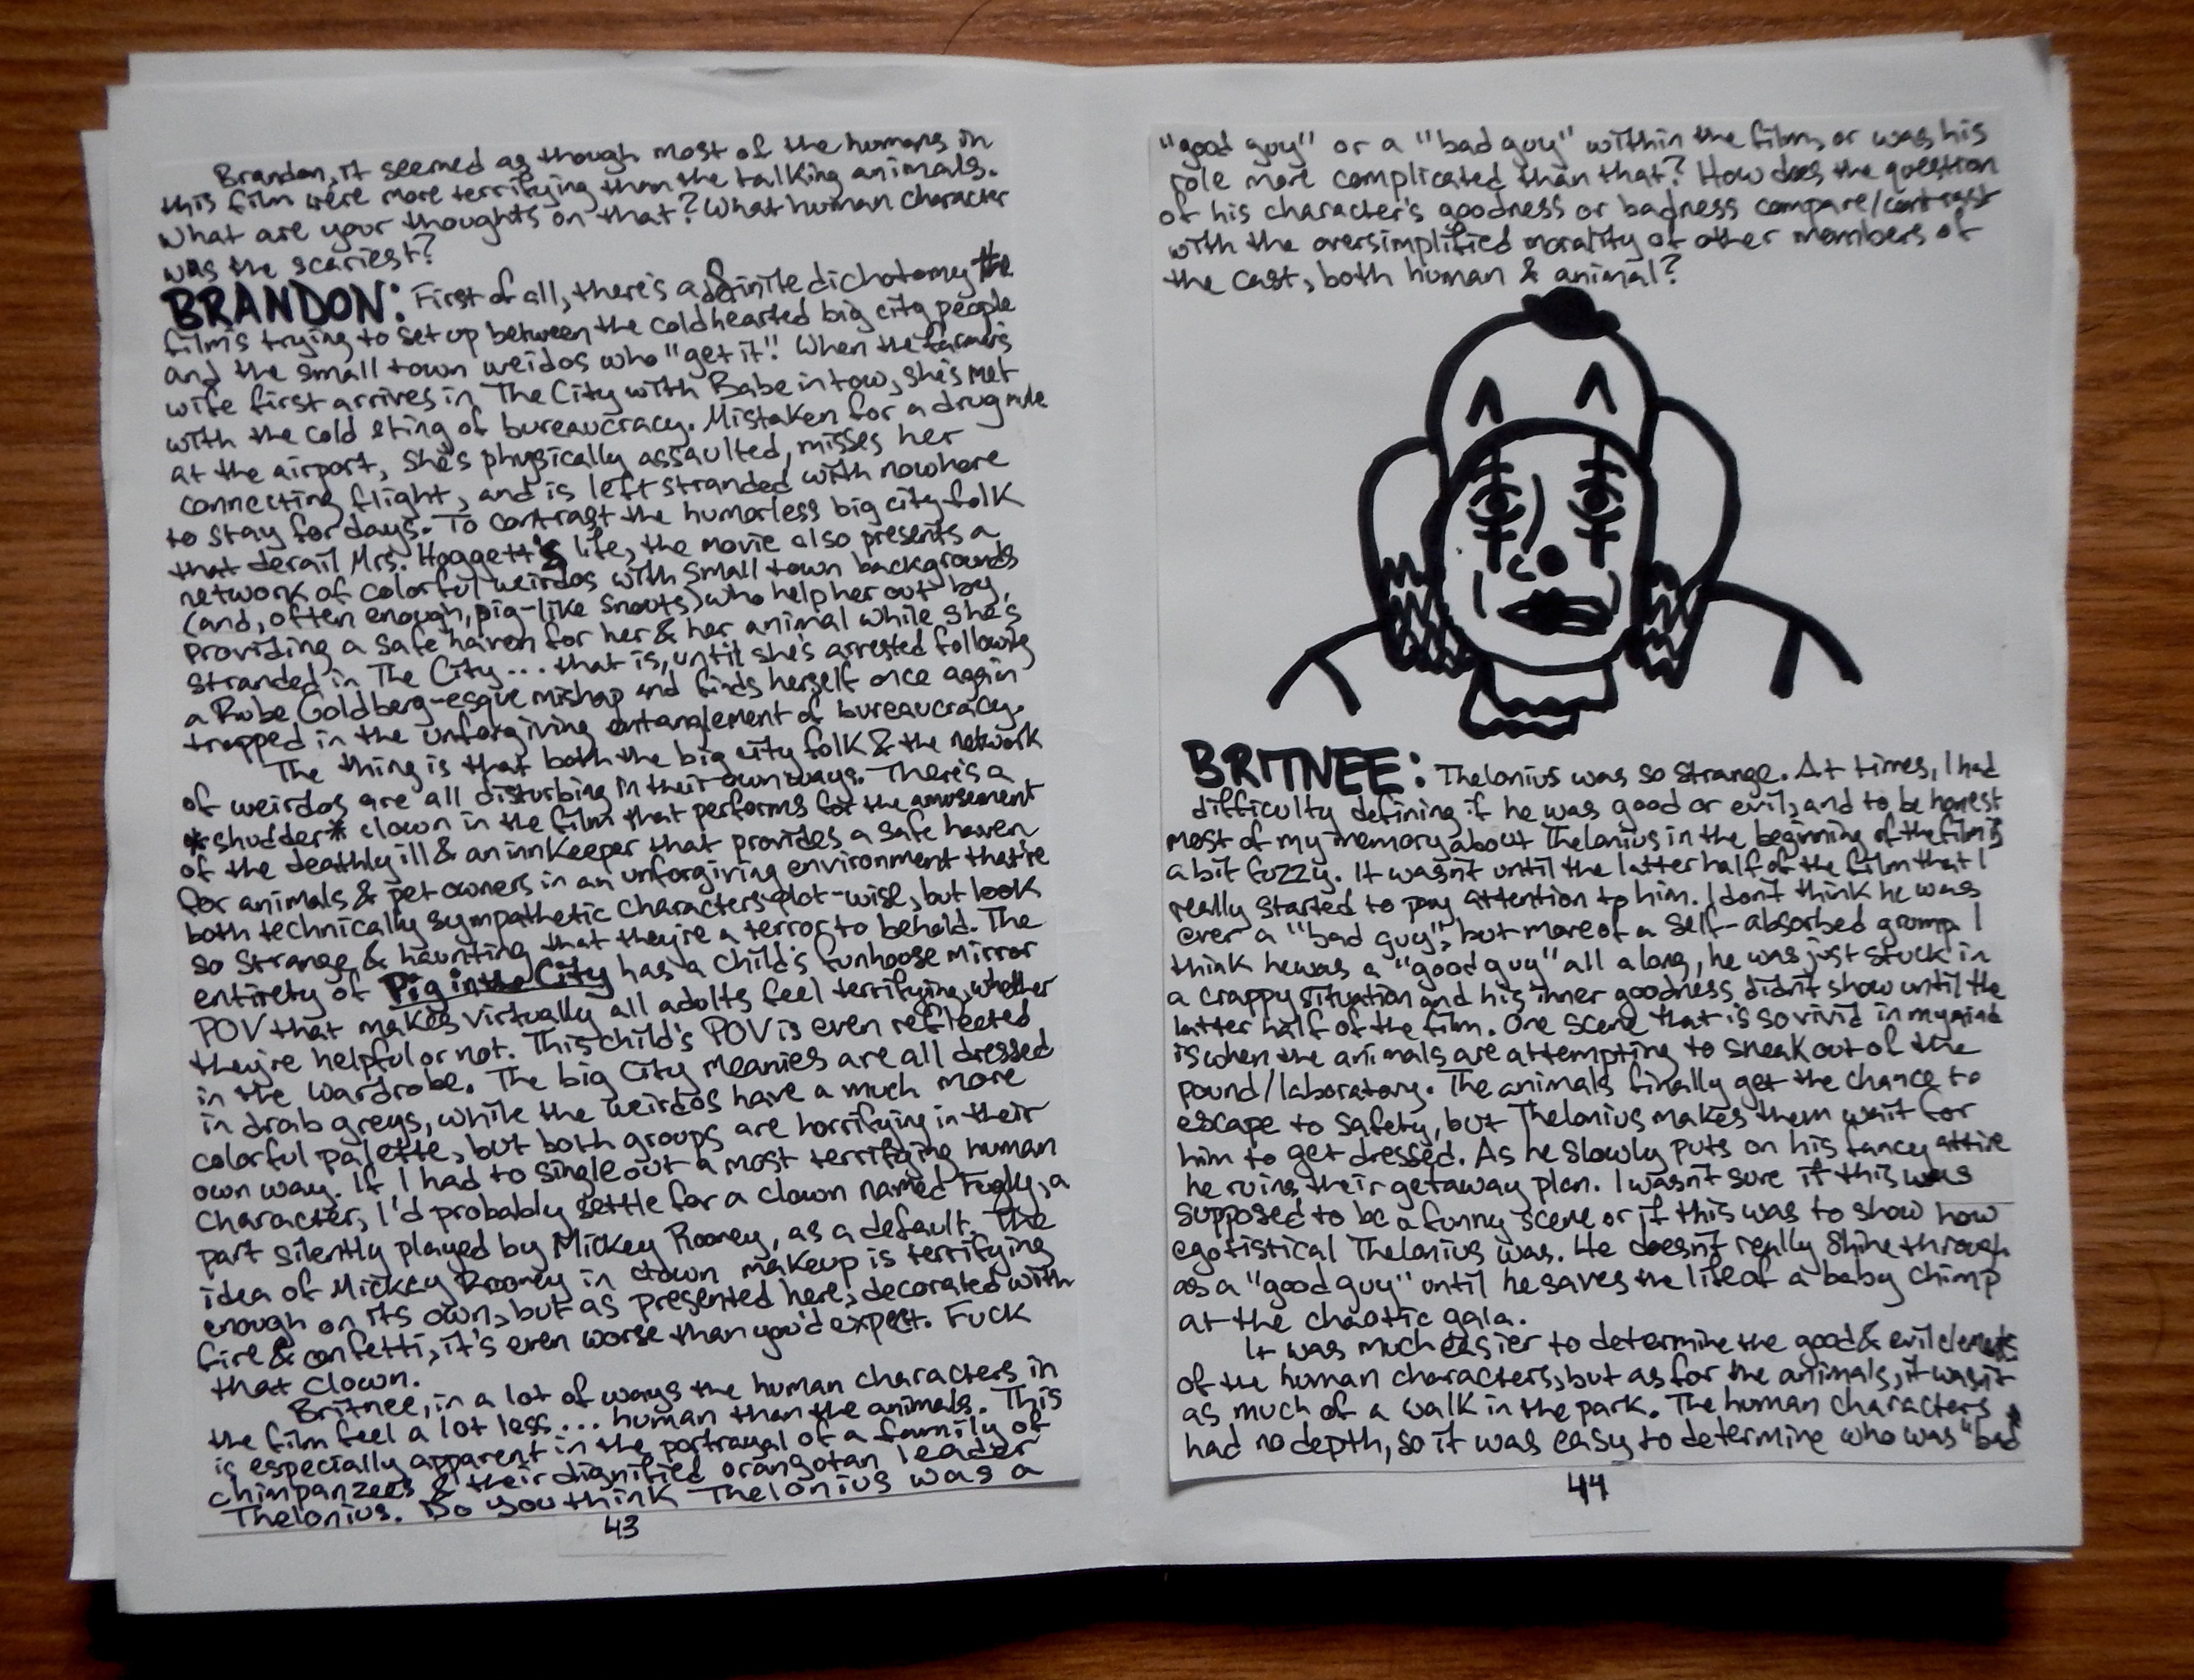 Brandon, it seemed as though most of the humans in
this film were more terrifying than the talking animals.
What are your thoughts on that? What human character
was the scariest?
BRANDON: First of all, there's a definite dichotomy the
film's trying to set up between the coldhearted big city people
and the small town weidos who "get it". When the farmer's
wife first arrives in The City with Babe in tow, she's met
with the cold sting of bureaucracy. Mistaken for a drug mule
at the airport, she's physically assaulted, misses her
connecting flight, and is left stranded with nowhere
to stay for days. To contrast the humorless big city folk
that derail Mrs. Hoggett's life, the movie also presents a
network of colorful weirdos with small town backgrounds
(and, often enough, pig-like snouts) who help her out by
providing a safe haven for her & her animal while she's
stranded in The City... that is, until she's arrested following
a Rube Goldberg-esque mishap and finds herself once again
trapped in the unforgiving entanglement of bureaucracy.
The thing is that both the big city folk & the network
of weirdos are all disturbing in their own ways. There's a
*shudder* clown in the film that performs for the amusement
of the deathly ill & an innkeeper that provides a safe haven
for animals & pet owners in an unforgiving environment that're
both technically sympathetic characters plot-wise, but look
so strange & haunting that they're a terror to behold. The
entirety of Pig in the City has a child's funhouse mirror
POV that makes virtually all adults feel terrifying, whether
they're helpful or not. This child's POV is even reflected
in the wardrobe. The big city meanies are all dressed
in drab greys, while the weirdos have a much more
colorful palette, but both groups are horrifying in their
own way. If I had to single out a most terrifying human
character, I'd probably settle for a clown named Fugly, a
part silently played by Mickey Rooney, as a default. The
idea of Mickey Rooney in clown makeup is terrifying
enough on its own, but as presented here, decorated with
fire & confetti, it's even worse than you'd expect. Fuck
that clown.
Britnee, in a lot of ways the human characters in
the film feel a lot less... human than the animals. This
is especially apparent in the portrayal of a family of
chimpanzees & their dignified orangotan leader
Thelonius. Do you think Thelonius was a
43
"good guy" or a "bad guy" within the film, or was his
role more complicated than that? How does the question
of his character's goodness or badness compare/contrast
with the oversimplified morality of other members of
the cast, both human & animal?
BRITNEE: Thelonius was so strange. At times, I had
difficulty defining if he was good or evil, and to be honest
most of my memory about Thelonius in the beginning of the film is
a bit fuzzy. It wasn't until the latter half of the film that I
really started to pay attention to him. I don't think he was
ever a "bad guy", but more of a self-absorbed grump. I
think he was a "good guy" all along, he was just stuck in
a crappy situation and his inner goodness didn't show until the
latter half of the film. One scene that is so vivid in my mind
is when the animals are attempting to sneak out of the
pound/laboratory. The animals finally get the chance to
escape to safety, but Thelonius makes them wait for
him to get dressed. As he slowly puts on his fancy attire
he ruins their getaway plan. I wasn't sure if this was
supposed to be a funny scene or if this was to show how
egotistical Thelonius was. He doesn't really shine through
as a "good guy" until he saves the life of a baby chimp
at the chaotic gala.
It was much easier to determine the good & evil elements
of the human characters, but as for the animals, it wasn't
as much of a walk in the park. The human characters
had no depth, so it was easy to determine who was "bad
44